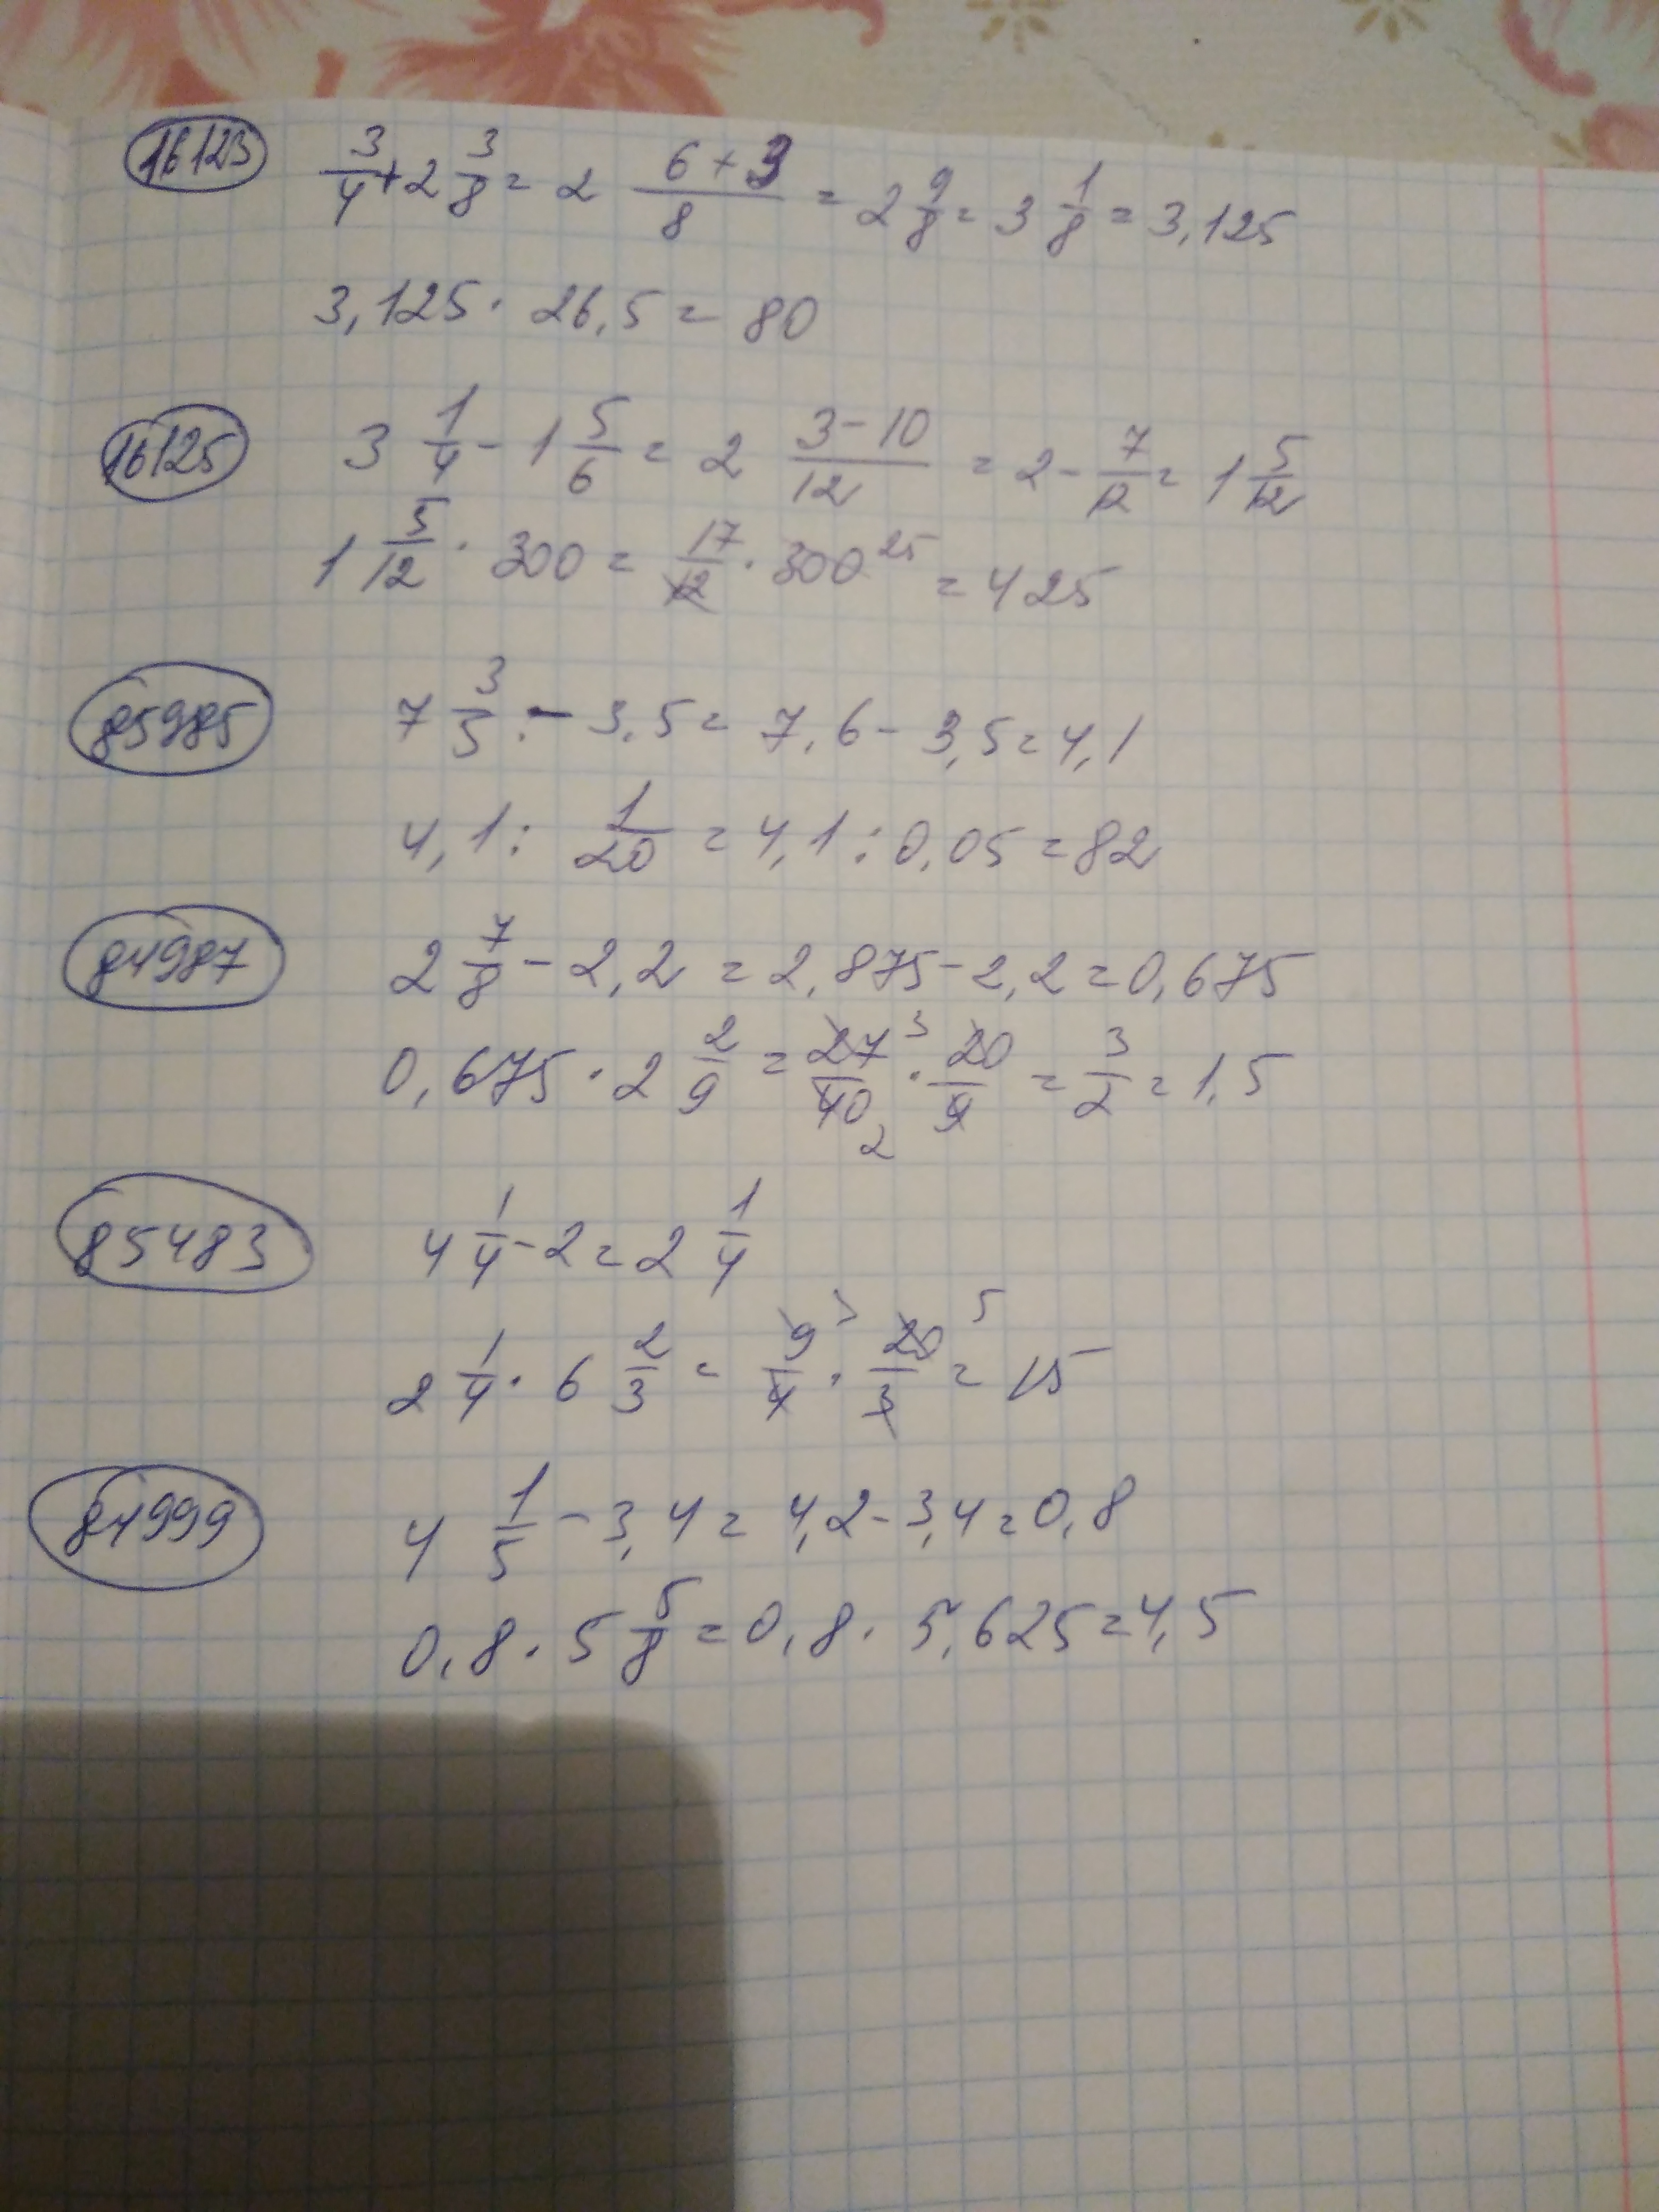 16123 3/4 + 2 3/8 = 2 (6+3)/8 = 2 9/8 = 3 1/8 = 3,125
3,125 · 26,5 = 80
16125 3 1/4 - 1 5/6 = 2 (3-10)/12 = 2 - 7/12 = 1 5/12
1 5/12 · 300 = 17/12 · 300 25 = 425
85985 7 3/5 - 3,5 = 7,6 - 3,5 = 4,1
4,1 : 1/20 = 4,1 : 0,05 = 82
84987 2 7/8 - 2,2 = 2,875 - 2,2 = 0,675
0,675 · 2 2/9 = 27 3/40 2 · 20/9 = 3/2 = 1,5
85483 4 1/4 - 2 = 2 1/4
2 1/4 · 6 2/3 = 9 3/4 · 20 5/3 = 15
84999 4 1/5 - 3,4 = 4,2 - 3,4 = 0,8
0,8 · 5 5/8 = 0,8 · 5,625 = 4,5